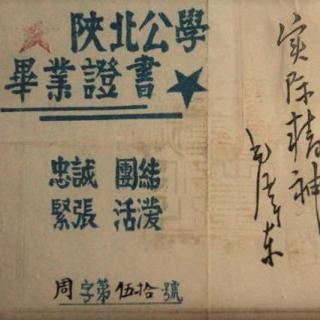 陝北公學
畢業證書
忠誠 團結
緊張 活潑
周字第伍拾號
实际精神
毛泽东